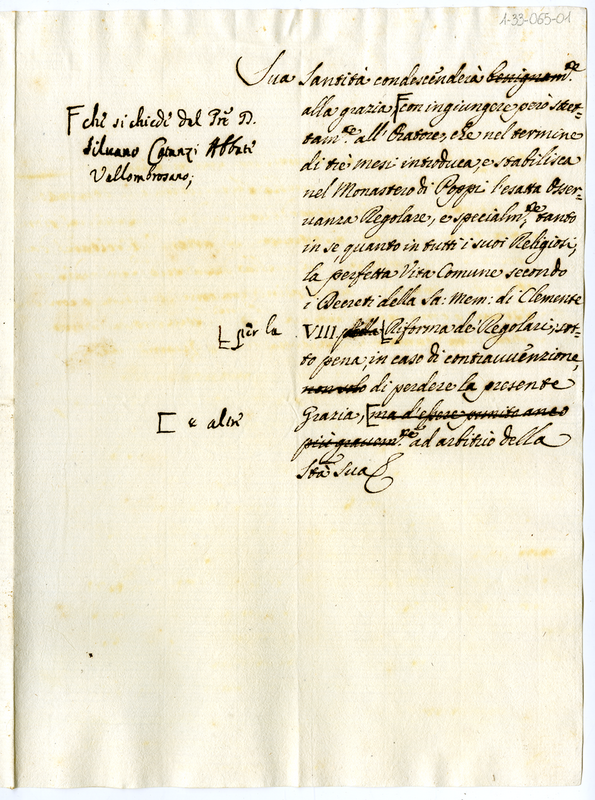 1-33-065-01
Sua Santità condescenderà benignam.te
alla grazia, [con ingiungere però stret-
tam.te all'Oratore, che nel termine
di tre mesi introduca, e stabilisca
nel Monastero di Poppi l'esatta Osser-
vanza Regolare, e specialm.te tanto
in se quanto in tutti i suoi Religiosi,
la perfetta Vita Comune secondo
i Decreti della Sa: Mem: di Clemente
VIII della [Riforma de' Regolari, sot-
to pena, in caso di contravvenzione,
non solo di perdere la presente
Grazia, [ma d'essere punito anco
più gravem.te ad arbitrio della
Stà Sua
[che si chiede dal Pre D.
Silvano Abbate
Vallombrosano;
[per la
[e altre